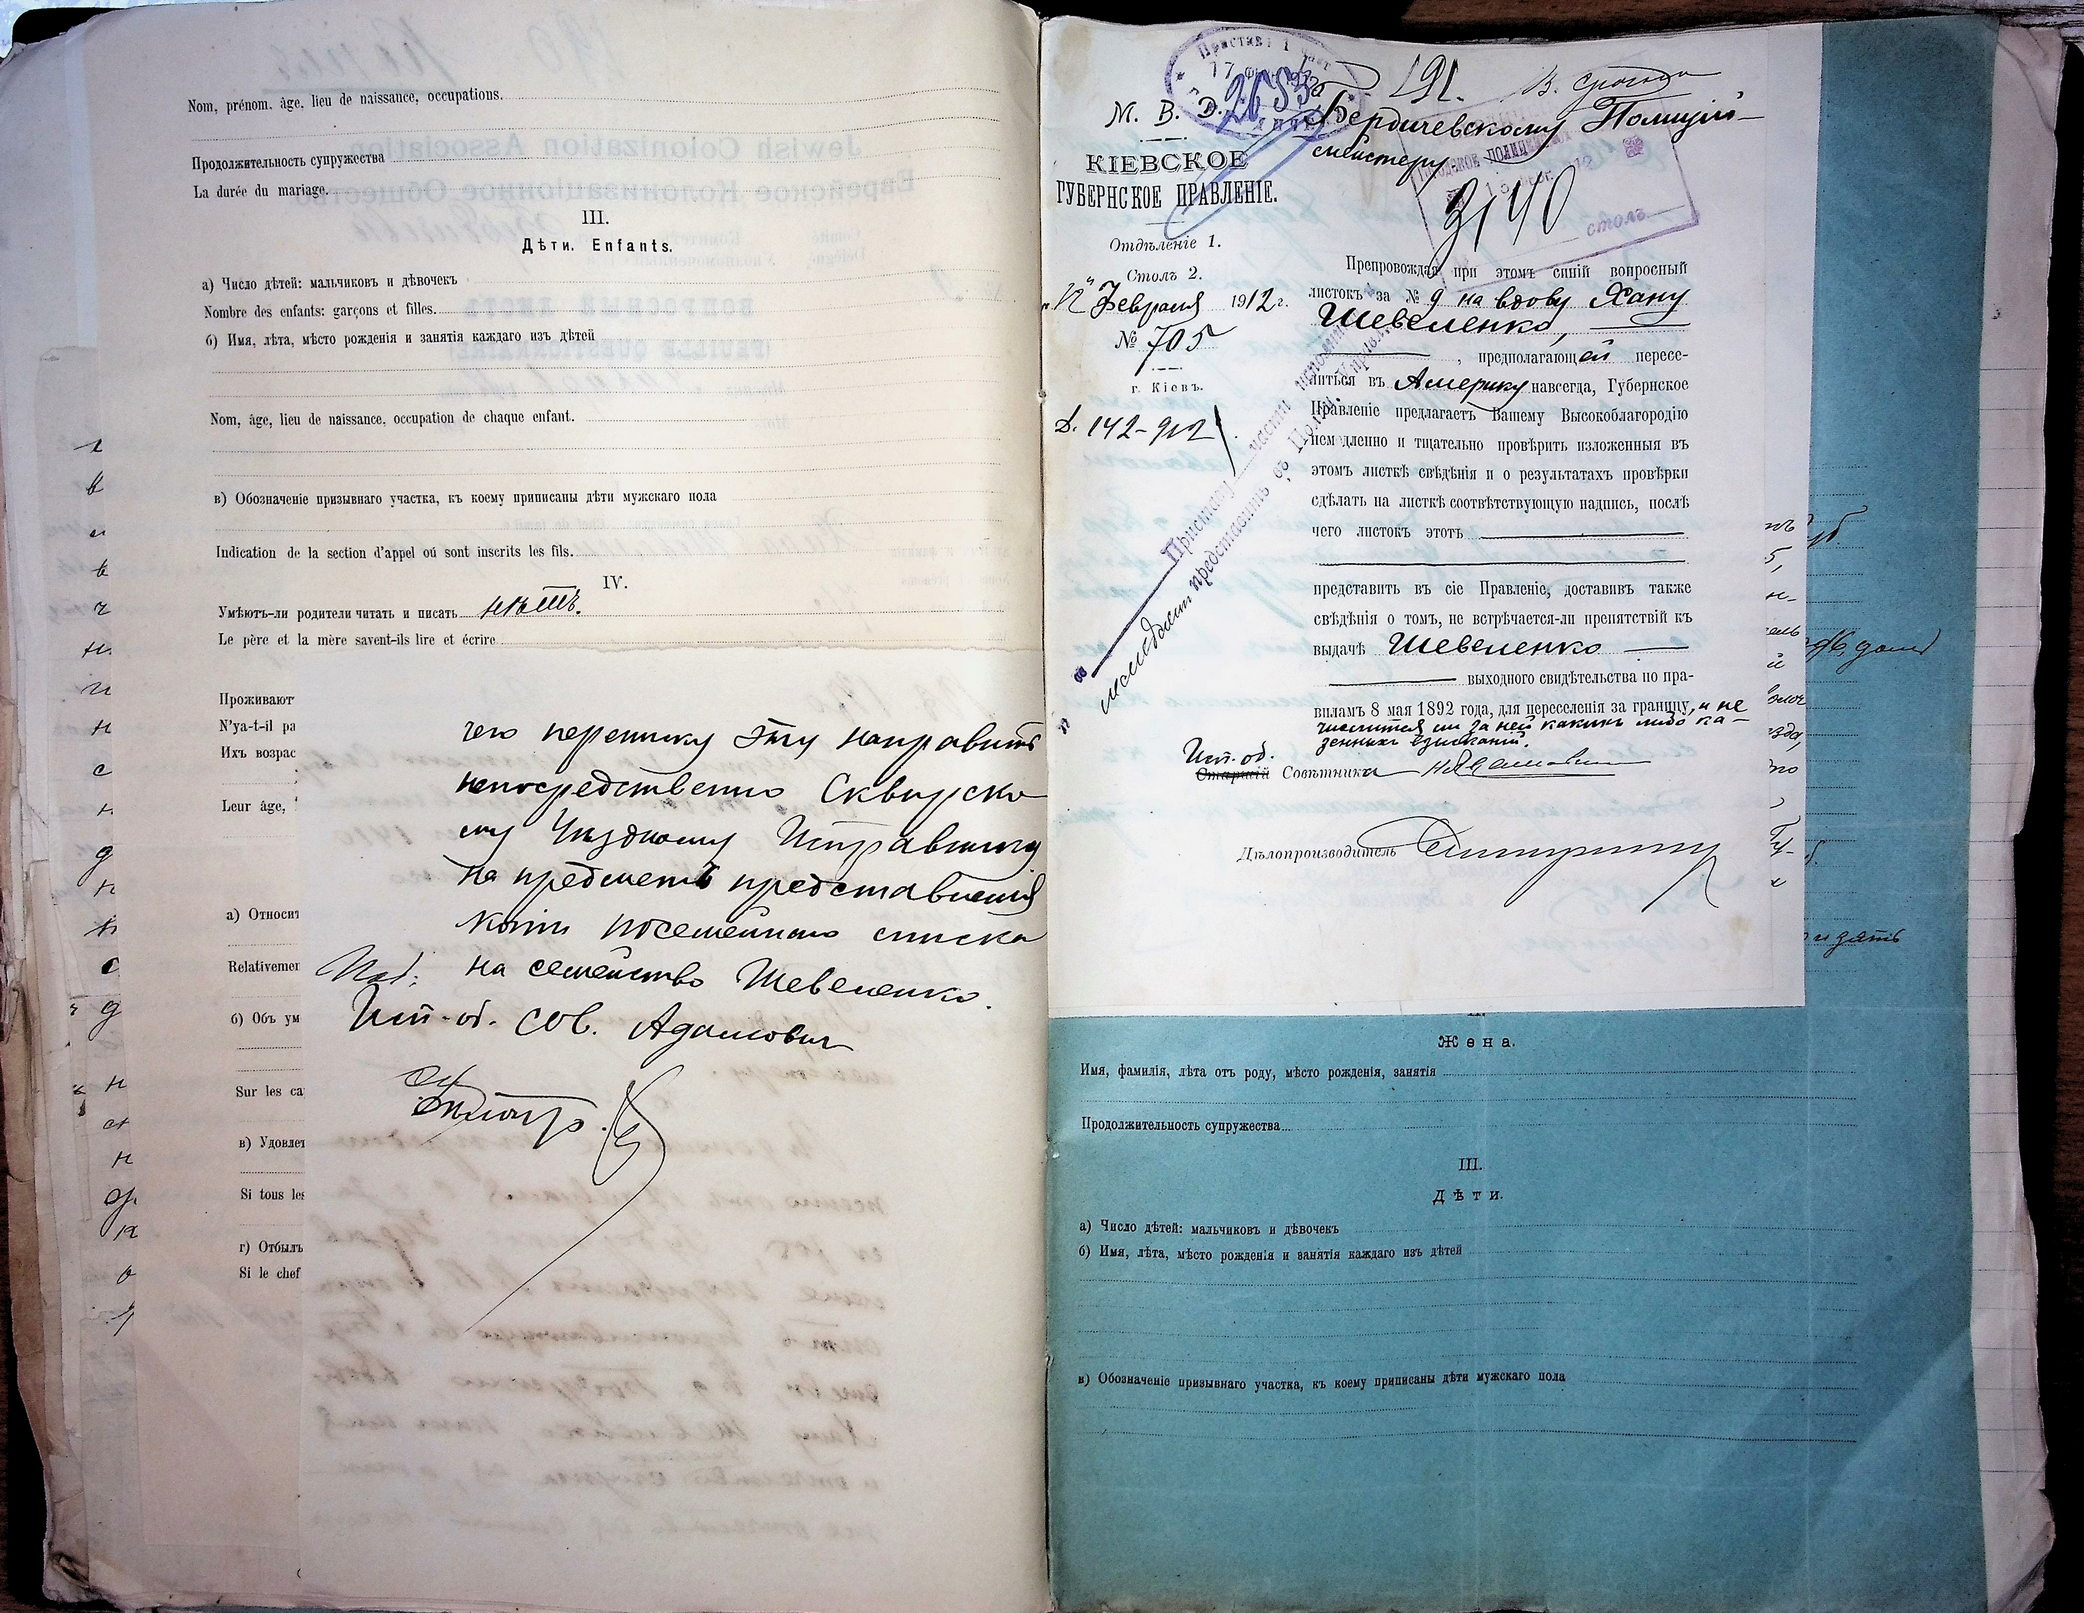 Nom, prénom, âge, lieu de naissance, occupations.
Продолжительность супружества
La durée du mariage.
III.
Дѣти. Enfants.
а) Число дѣтей: мальчиковъ и дѣвочекъ
Nombre des enfants: garçons et filles.
б) Имя, лѣта, мѣсто рожденія и занятія каждаго изъ дѣтей
Nom, âge, lieu de naissance, occupation de chaque enfant.
в) Обозначеніе призывнаго участка, къ коему приписаны дѣти мужскаго пола
Indication de la section d'appel oú sont inscrits les fils.
IV.
Умѣютъ-ли родители читать и писать нѣтъ.
Le père et la mère savent-ils lire et écrire
Проживают
N'ya-t-il pa
Ихъ возрас
Leur âge,
а) Относит
Relativemen
б) Объ ум
Sur les ca
в) Удовлет
Si tous les
г) Отбылъ
Si le chef
чего переписку эту направить
непосредственно Сквирско
му Уѣздному Исправнику
на предметъ представленія
копіи посемейнаго списка
на семейство Шевеленко.
Под:
Исп. об. сов. Адамович
М. В. Д.
КІЕВСКОЕ
ГУБЕРНСКОЕ ПРАВЛЕНІЕ.
Отдѣленіе 1.
Столъ 2.
Февраля 1912 г.
№ 705
г. Кіевъ.
Д. 142-912
2683
191.
В. срочно
Бердичевскому Полицій-
мейстеру
3140
столъ
Препровождая при этомъ синій вопросный
листокъ за № 9 на вдову Хану
Шевеленко,
, предполагающей пересе-
литься въ Америку навсегда, Губернское
Правленіе предлагаетъ Вашему Высокоблагородію
немедленно и тщательно провѣрить изложенныя въ
этомъ листкѣ свѣдѣнія и о результатахъ провѣрки
сдѣлать на листкѣ соотвѣтствующую надпись, послѣ
чего листокъ этотъ
представить въ сіе Правленіе, доставивъ также
свѣдѣнія о томъ, не встрѣчается-ли препятствій къ
выдачѣ Шевеленко
выходного свидѣтельства по пра-
виламъ 8 мая 1892 года, для переселенія за границу, и не
числится ли за ней какихъ либо ка-
зенныхъ взысканій.
Исп. об.
Старшій Совѣтника
Дѣлопроизводитель
Приставу части исполнить
представить въ Полиц. Управл.
Жена.
Имя, фамилія, лѣта отъ роду, мѣсто рожденія, занятія
Продолжительность супружества
III.
Дѣти.
а) Число дѣтей: мальчиковъ и дѣвочекъ
б) Имя, лѣта, мѣсто рожденія и занятія каждаго изъ дѣтей
в) Обозначеніе призывнаго участка, къ коему приписаны дѣти мужскаго пола